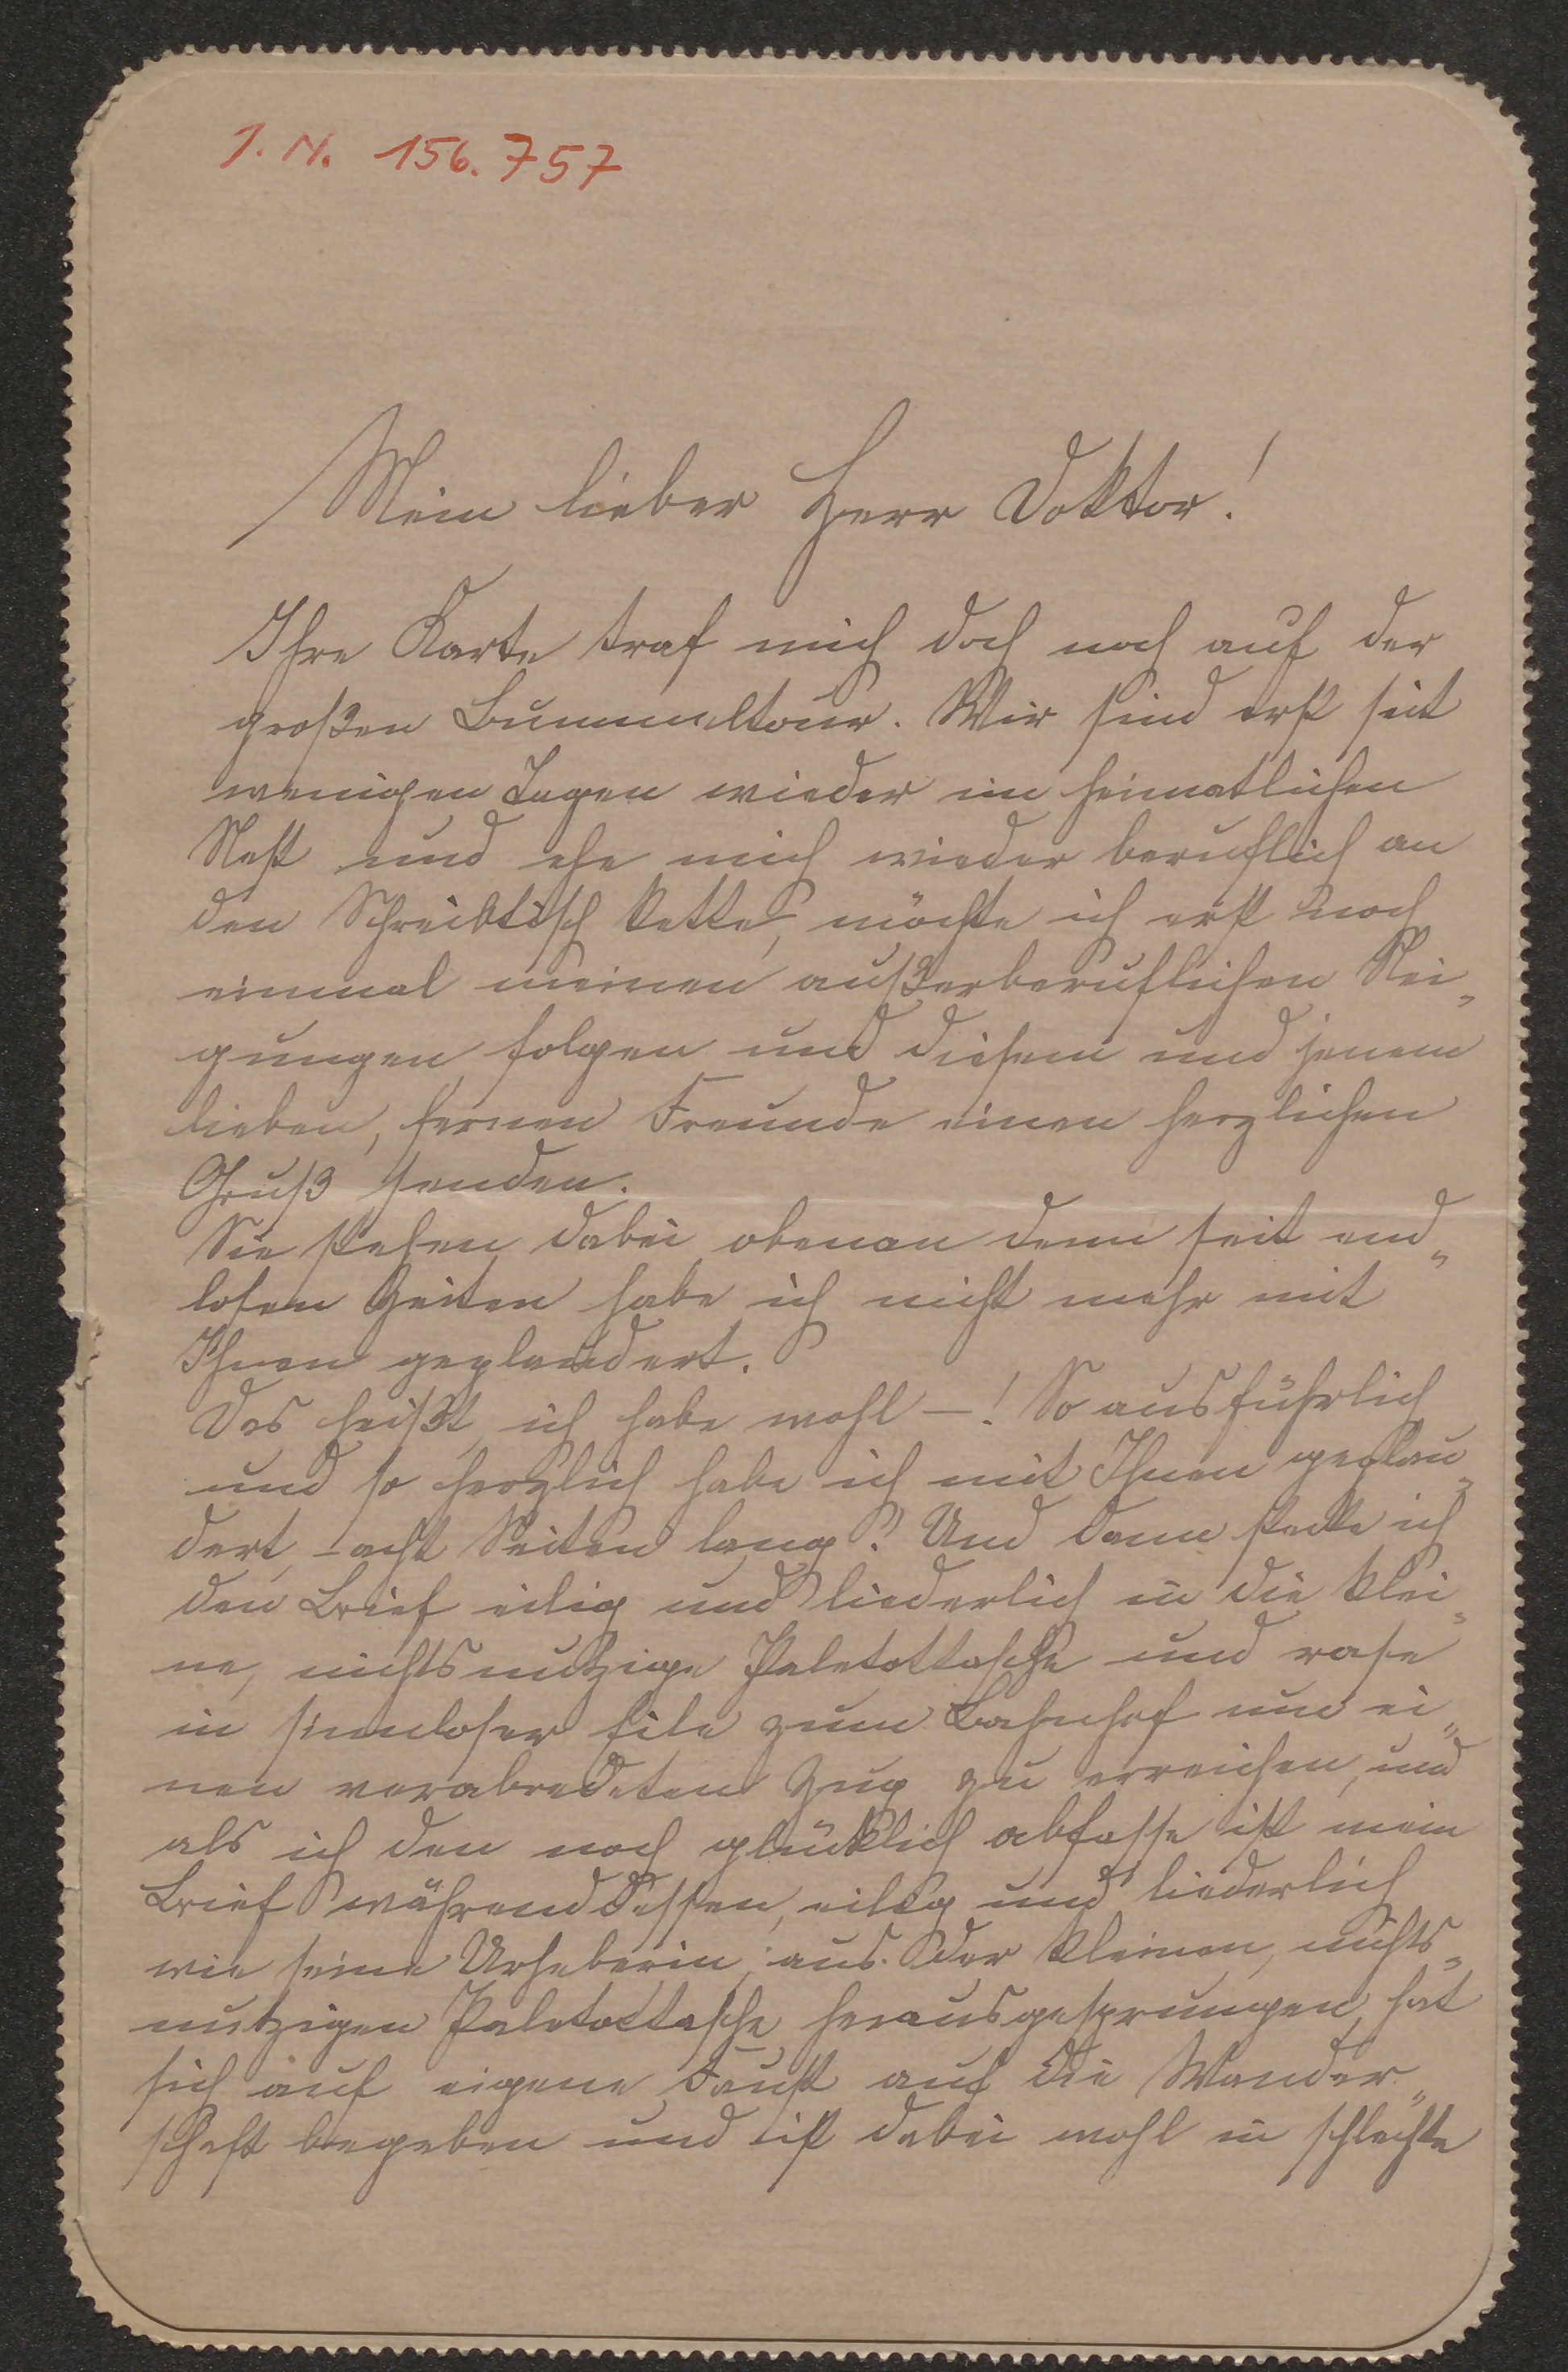 I. N. 156.757
Mein lieber Herr Doktor!
Ihre Karte traf mich doch noch auf der
großen Bummeltour. Wir sind erst seit
wenigen Tagen wieder im heimatlichen
Nest und ehe mich wieder beruflich an
den Schreibtisch kette, möchte ich erst noch
einmal meinen außerberuflichen Nei„
gungen folgen und diesem und jenem
lieben, fernen Freunde einen herzlichen
Gruß senden.
Sie stehen dabei obenan denn seit end„
losen Zeiten habe ich nicht mehr mit
Ihnen geplaudert.
Das heißt, ich habe wohl –! So ausführlich
und so herzlich habe ich mit Ihnen geplau„
dert, – acht Seiten lang! Und dann stecke ich
den Brief eilig und liederlich in die klei„
ne, nichtsnutzige Paletottasche und rase
in sinnloser Eile zum Bahnhof um ei„
nen verabredeten Zug zu erreichen, und
als ich den noch glücklich abfasse ist mein
Brief währenddessen, eilig und liederlich
wie seine Urheberin, aus der kleinen, nichts„
nutzigen Paletottasche herausgesprungen, hat
sich auf eigene Faust auf die Wander„
schaft begeben und ist dabei wohl in schlechte